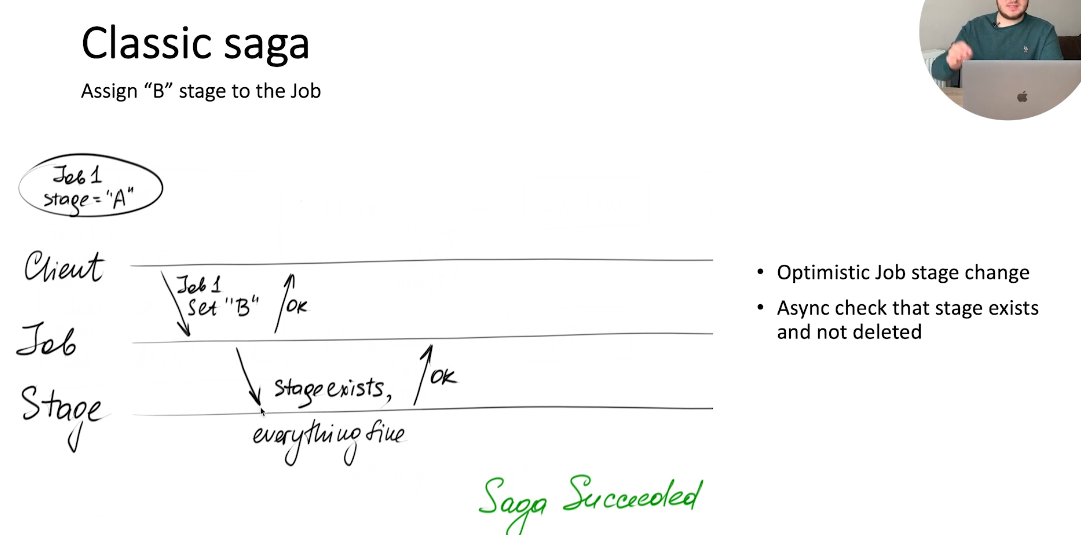 Classic saga
Assign “B” stage to the Job
Job 1
stage = "A"
Client
Job 1
Set "B"
OK
Job
Stage exists,
OK
Stage
everything fine
Saga Succeeded
• Optimistic Job stage change
• Async check that stage exists
and not deleted